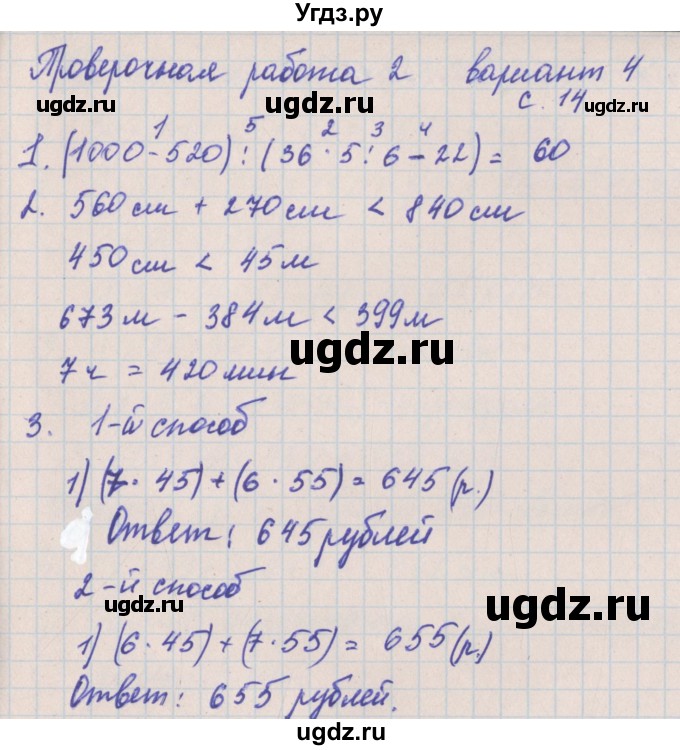 Угдз.ру
Проверочная работа 2 вариант 4
с. 14
ugdz.ru ugdz.ru ugdz.ru
1 5 2 3 4
1. (1000 - 520) : (36 · 5 : 6 - 22) = 60
2. 560 см + 270 см < 840 см
450 см < 45 м
673 м - 384 м < 399 м
ugdz.ru
7 ч = 420 мин
3. 1-й способ
1) (7 · 45) + (6 · 55) = 645 (р.)
Ответ: 645 рублей
2-й способ
ugdz.ru ugdz.ru
1) (6 · 45) + (7 · 55) = 655 (р.)
Ответ: 655 рублей.
ugdz.ru